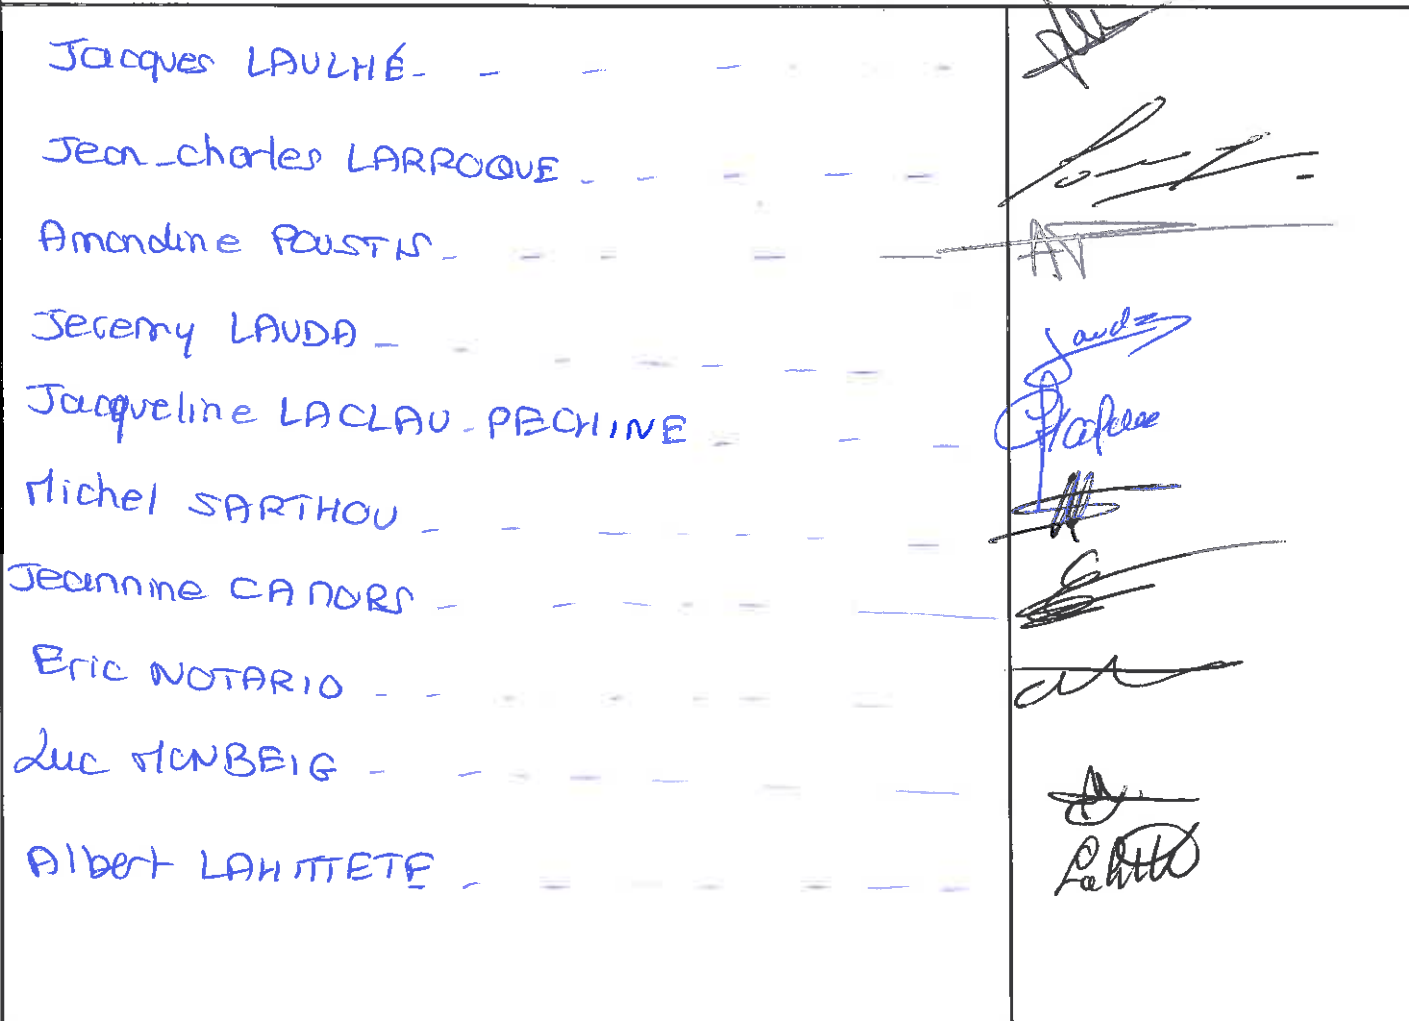 Jacques LAULHÉ
Jean-charles LARROQUE
Amandine POUSTIS
Jeremy LAUDA
Jacqueline LACLAU-PECHINE
Michel SARTHOU
Jeannine CAMORS
Eric NOTARIO
Luc MONBEIG
Albert LAHITTETE